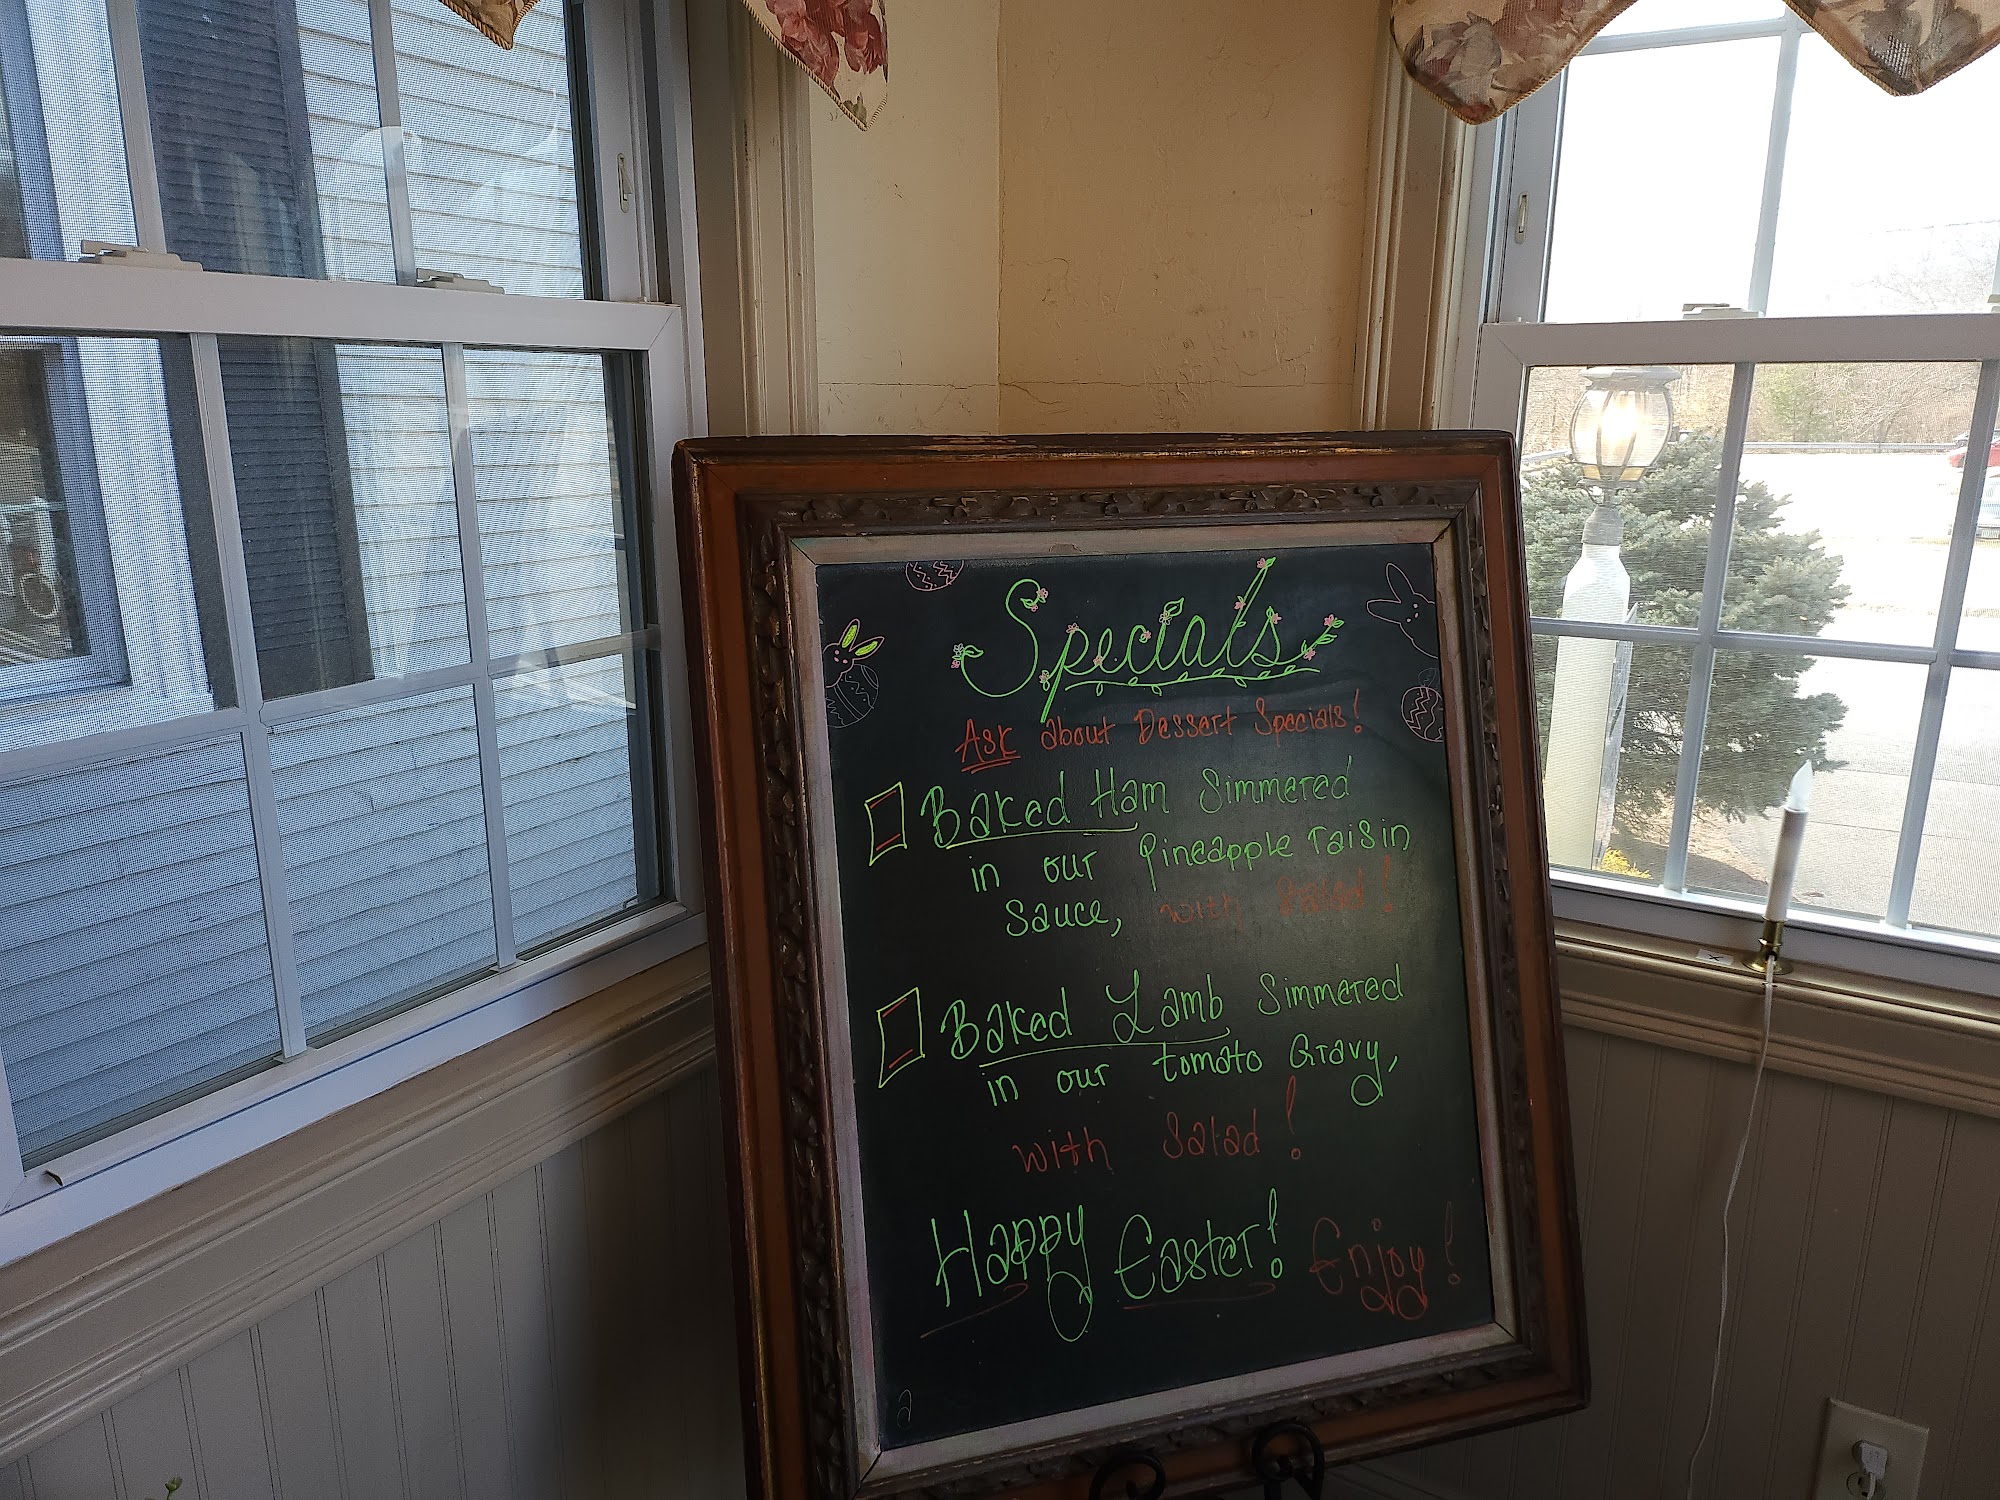 Specials
Ask about Dessert Specials!
Baked Ham Simmered
in our pineapple raisin
Sauce, with Salad!
Baked Lamb Simmered
in our tomato Gravy,
with Salad!
Happy Easter! Enjoy!
a